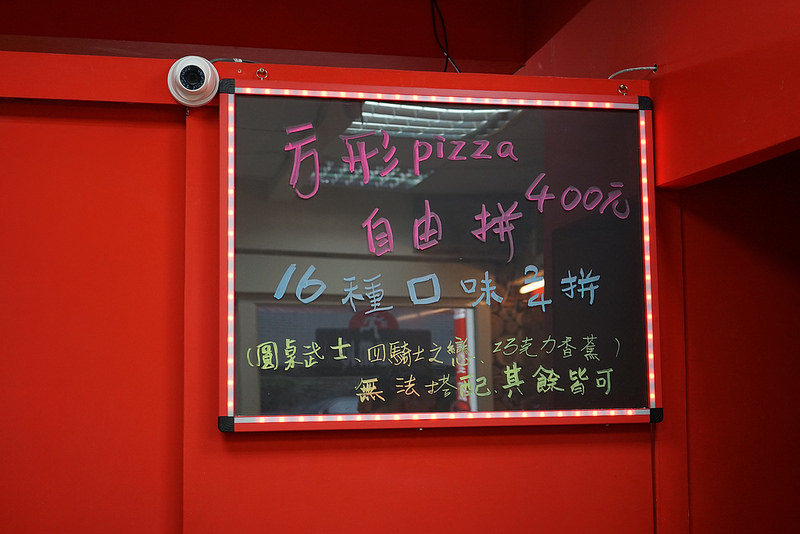 方形pizza
自由拼400元
16種口味2/4拼
(圓桌武士、四騎士之戀、巧克力香蕉)
無法搭配、其餘皆可